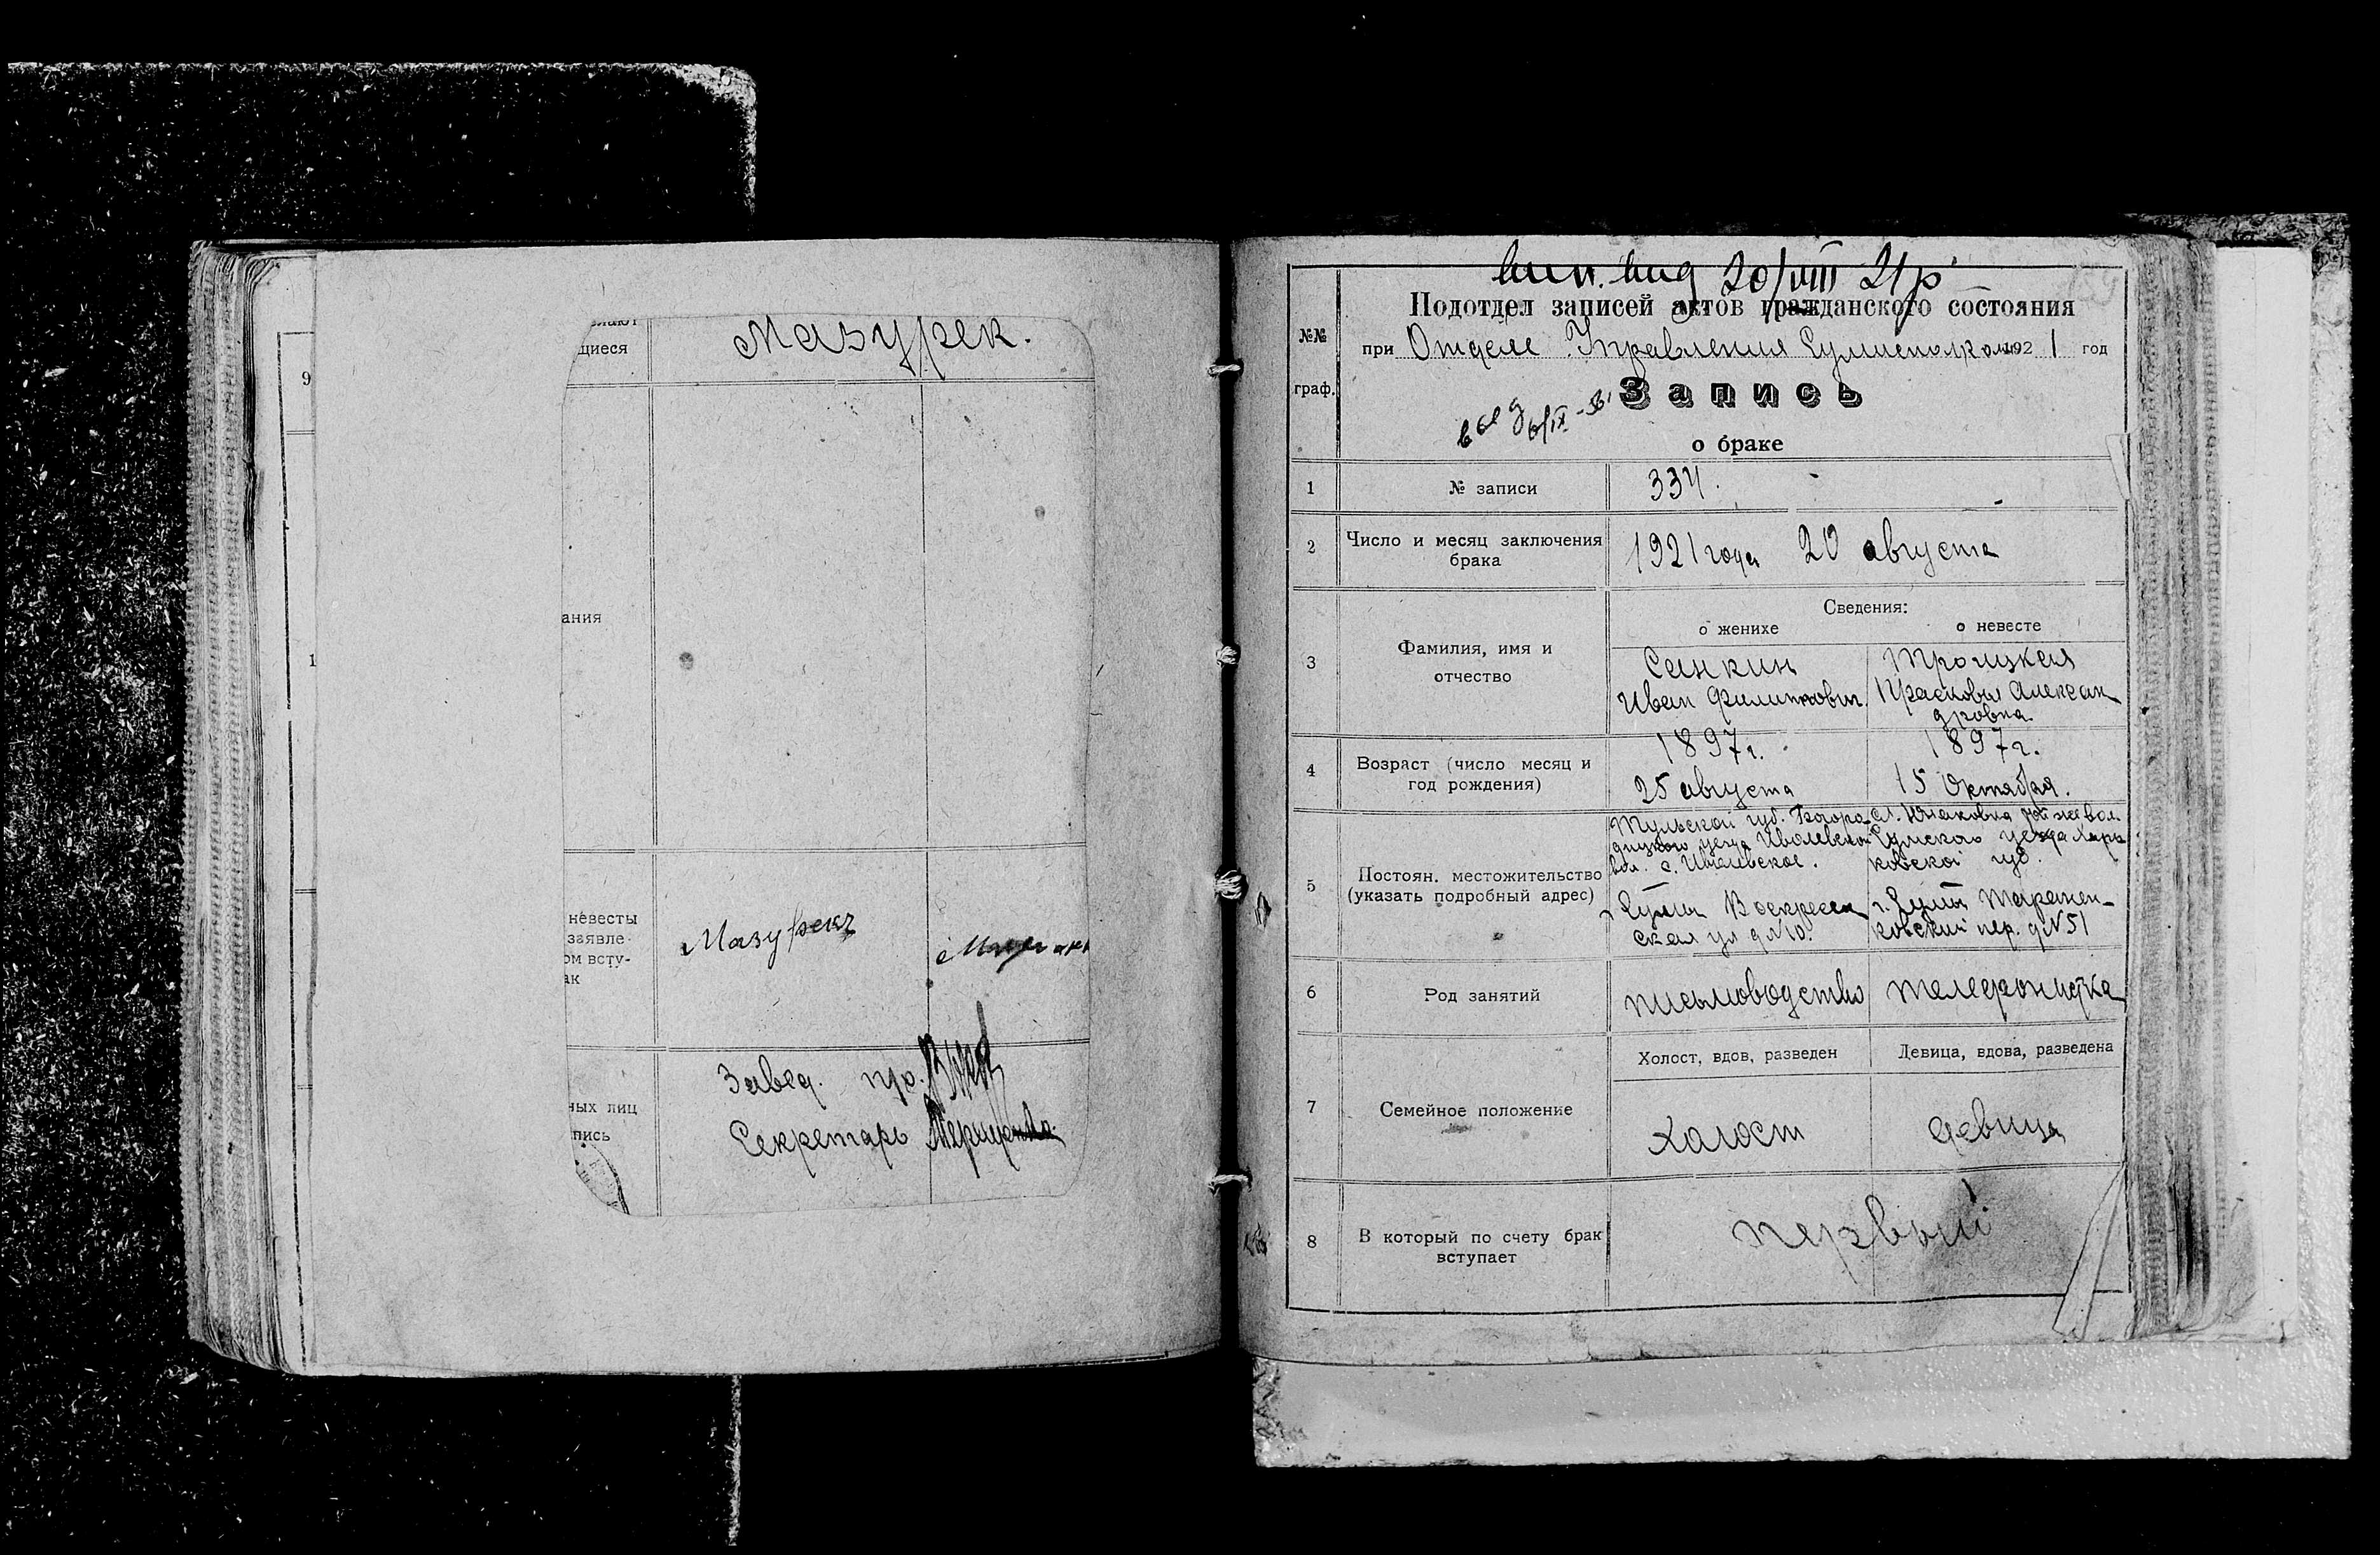 9
1
щиеся
Мазурек.
ания
невесты
заявле-
ом всту-
ак
Мазурекъ
ных лиц
пись
Завед. пр.
Секретарь
Вип. вид 20/VIII 21 р
№№
граф.
Подотдел записей актов гражданского состояния
при Отделе Управления Сумисполкома 1921 год
Запись
о браке
1
№ записи
334.
2
Число и месяц заключения
брака
1921 года 20 августа
3
Фамилия, имя и
отчество
Сведения:
о женихе
о невесте
Санкин
Иван Филиппович.
Троицкая
Прасковья Алексан
дровна
4
Возраст (число месяц и
год рождения)
1897г.
25 августа
1897г.
15 Октября.
5
Постоян. местожительство
(указать подробный адрес)
Тульской губ. Богоро-
дицкого уезда
вол. с.
Сумы Воскресен
ская ул д №10.
сл. Юнаковка той же вол.
Сумского уезда Харь
ковской губ.
г. Сумы
пер. д№51
6
Род занятий
письмоводство
телефонистка
7
Семейное положение
Холост, вдов, разведен
Девица, вдова, разведена
холост
девица
8
В который по счету брак
вступает
первый